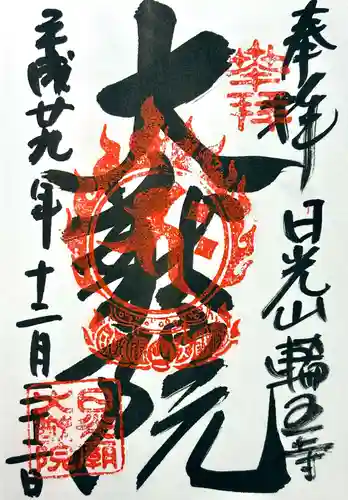 奉拝
日光山輪王寺
大猷院
平成廿九年十二月二十二日
奉拝
日光廟
大猷院